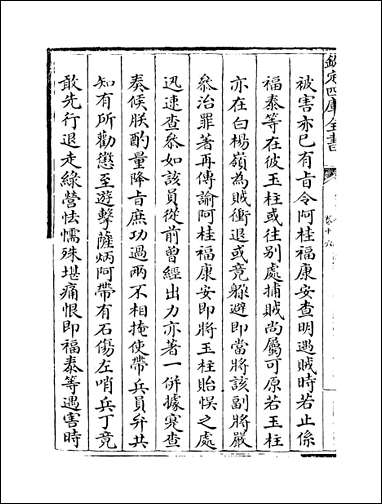 欽定四庫全書
被害亦已有旨令阿桂福康安查明遇賊時若止係
福泰等在彼玉柱或往別處捕賊尚屬可原若玉柱
亦在白楊嶺為賊衝退或竟躲避即當將該副將嚴
叅治罪著再傳諭阿桂福康安即將玉柱貽悞之處
迅速查叅如該員從前曾經出力亦著一併據實查
奏候朕酌量降旨庶功過兩不相掩使帶兵員弁共
知有所勸懲至遊擊薩炳阿帶有石傷左哨兵丁竟
敢先行退走綠營怯懦殊堪痛恨即福泰等遇害時